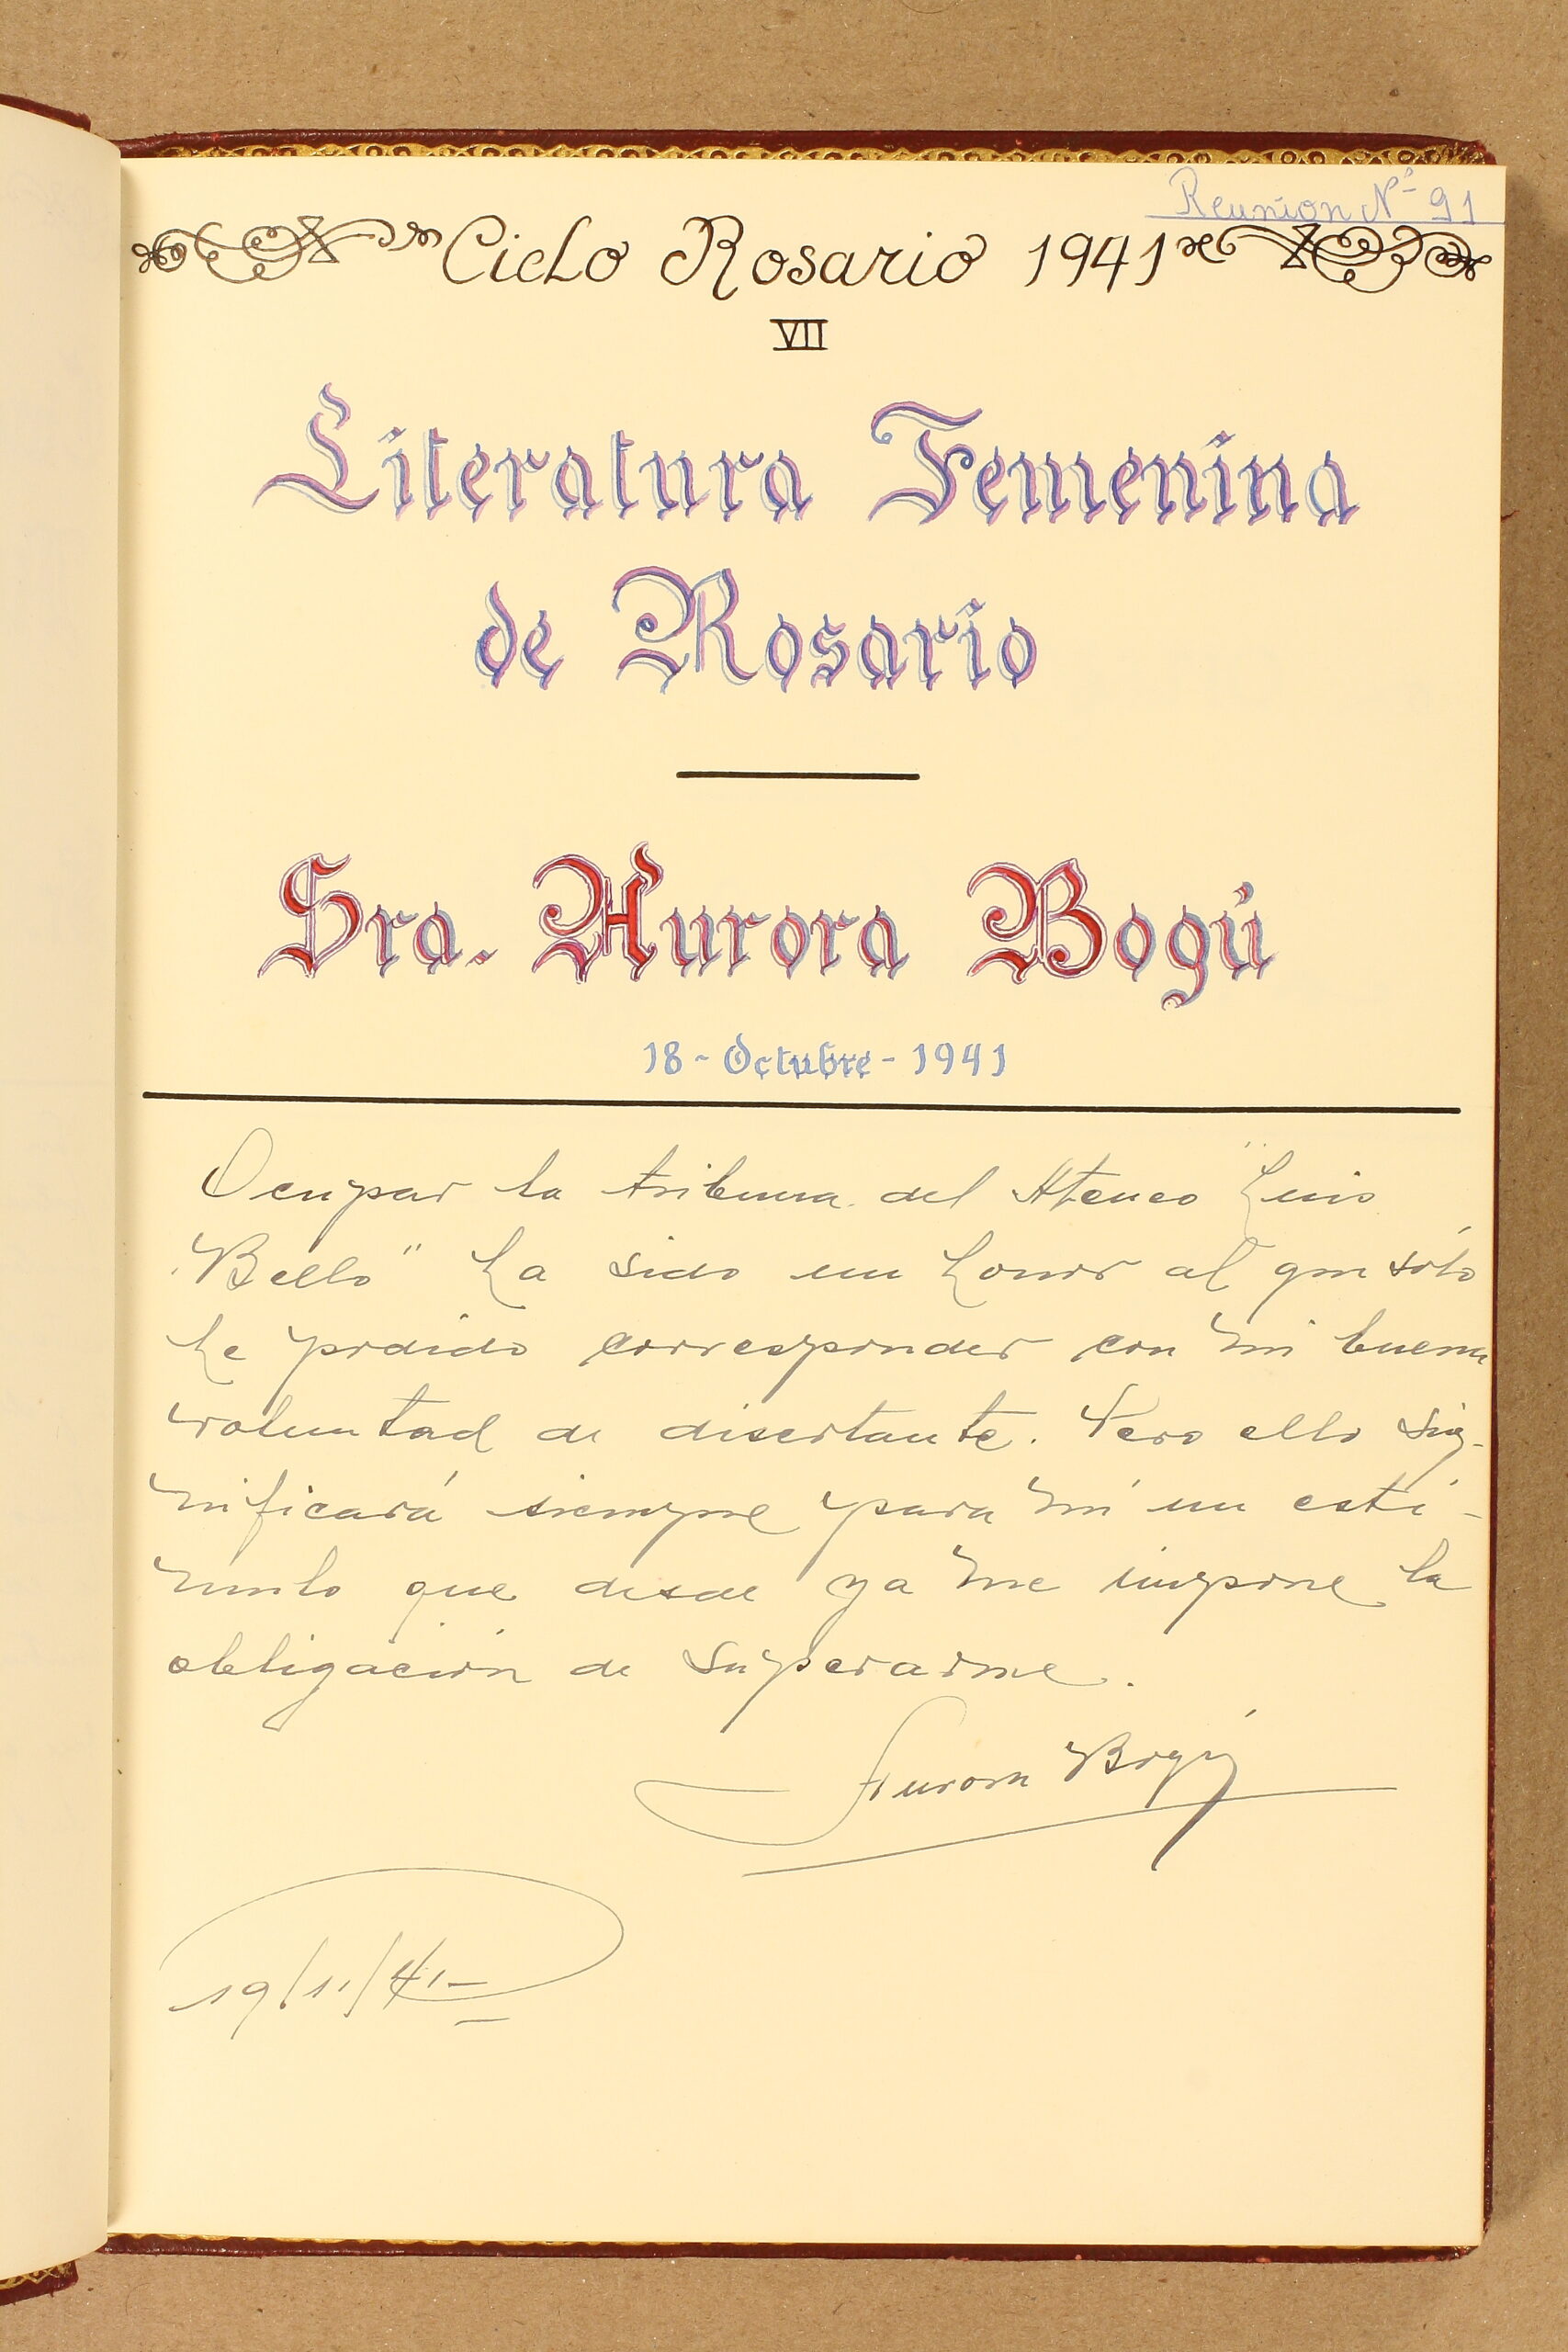 Reunion Nº 91
Ciclo Rosario 1941
VII
Literatura Femenina
de Rosario
Sra. Aurora Bogú
18 - Octubre - 1941
Ocupar la tribuna del Ateneo "Luis
Bello" ha sido un honor al que sólo
he podido corresponder con mi buena
voluntad de disertante. Pero ello sig-
nificará siempre para mí un estí-
mulo que desde ya me impone la
obligación de superarme.
Aurora Bogú
19/11/41-